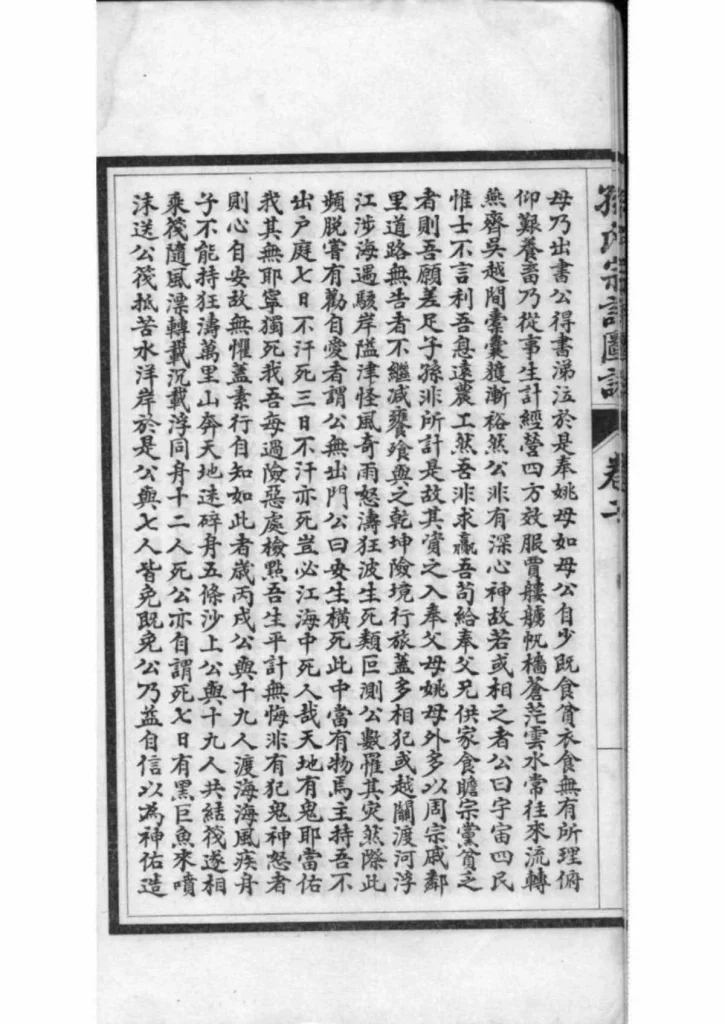 孫氏宗譜圖說
卷二
母乃出書公得書涕泣於是奉姚母如母公自少既食貧衣食無有所理俯
仰艱養畜乃從事生計經營四方效服賈艛艣帆檣蒼茫雲水常往來流轉
燕齊吳越間橐囊獲漸裕然公非有深心神故若或相之者公曰宇宙四民
惟士不言利吾息遠農工然吾非求贏吾苟給奉父兄供家食贍宗黨貧乏
者則吾願差足子孫非所計是故其資之入奉父母姚母外多以周宗戚鄰
里道路無告者不繼減饔飧與之乾坤險境行旅蓋多相犯或越關渡河浮
江涉海遇駿岸隘津怪風奇雨怒濤狂波生死類叵測公數罹其灾然際此
頻脫嘗有勸自愛者謂公無出門公曰安生橫死此中當有物焉主持吾不
出戶庭七日不汗死三日不汗亦死豈必江海中死人哉天地有鬼耶當佑
我其無耶寧獨死我吾每過險惡處檢點吾生平計無悔非有犯鬼神怒者
則心自安故無懼蓋素行自知如此者歲丙戌公與十九人渡海海風疾舟
子不能持狂濤萬里山奔天地迷碎舟五條沙上公與十九人共結筏遂相
乘筏隨風漂轉載沉載浮同舟十二人死公亦自謂死七日有黑巨魚來噴
沫送公筏抵苦水洋岸於是公與七人皆免既免公乃益自信以為神佑造